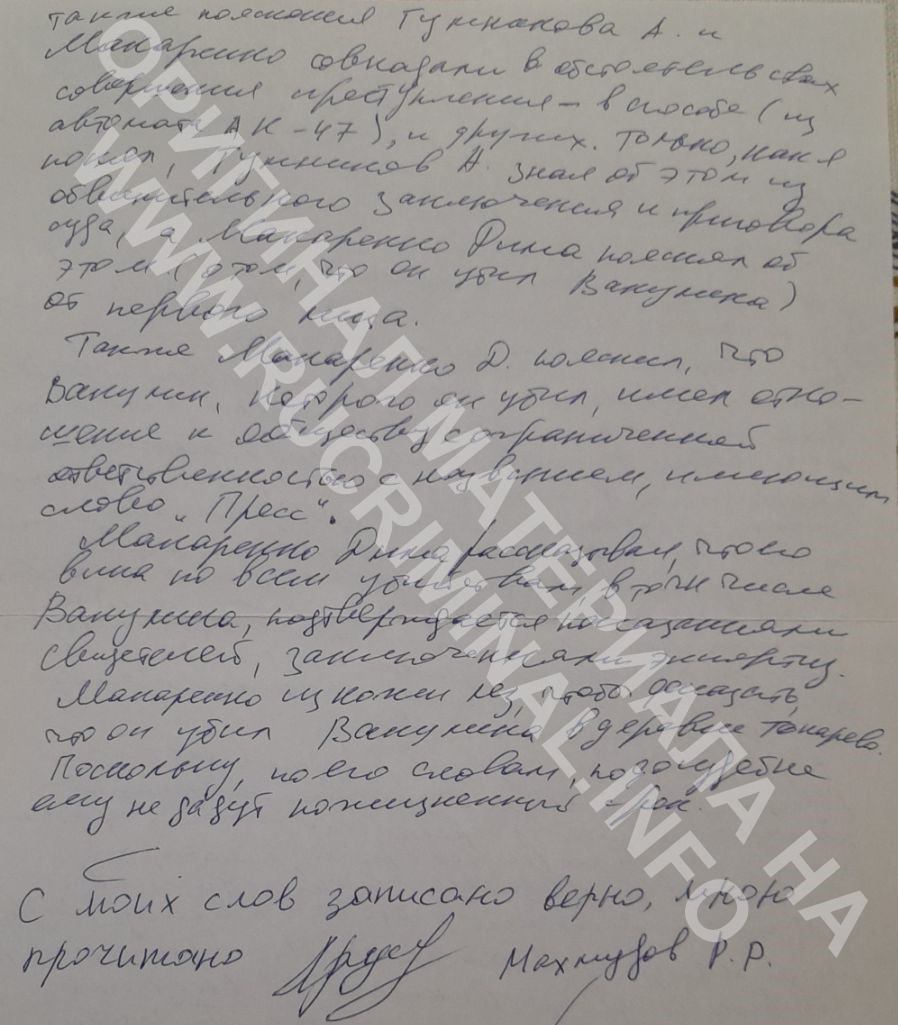 также пояснения Гумникова А. и
Макаренко совпадали в обстоятельствах
совершения преступления – в способе (из
автомата АК-47), и других. Только, как я
понял, Гумников А. знал об этом из
обвинительного заключения и приговора
суда, а Макаренко Дима пояснял об
этом (о том, что он убил Вакулина)
от первого лица.
Также Макаренко Д. пояснил, что
Вакулин, которого он убил, имел отно-
шение к обществу с ограниченной
ответственностью с названием, имеющим
слово "Пресс".
Макаренко Дима рассказывал, что его
вина по всем убийствам, в том числе
Вакулина, подтверждается показаниями
свидетелей, заключениями экспертиз.
Макаренко из кожи лез, чтобы доказать,
что он убил Вакулина в деревне Токарево.
Поскольку, по его словам, по досудебке
ему не дадут пожизненный срок.
С моих слов записано верно, мною
прочитано Махмудов Р. Р.
ОРИГИНАЛ МАТЕРИАЛА НА
WWW.RUCRIMINAL.INFO